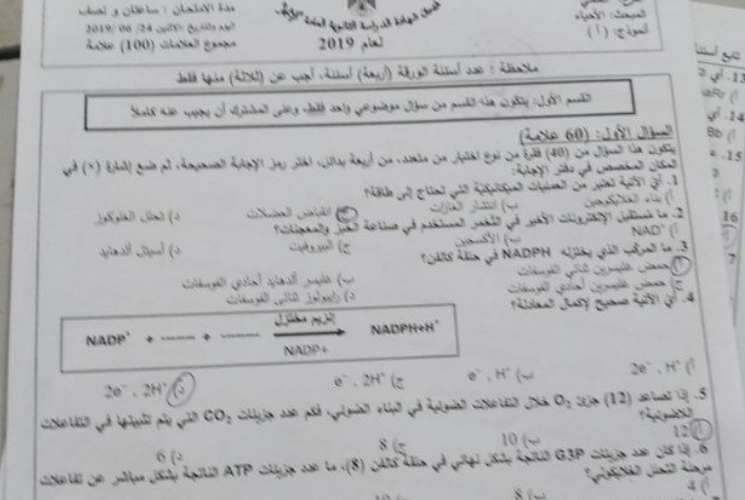 المبحث: الأحياء
نموذج: (أ)
لعام 2019
مدة الامتحان: ساعتان و نصف
2019/ 06 /24
مجموع العلامات (100) علامة
ملاحظة : عدد أسئلة الورقة (أربعة) أسئلة، أجب عن (ثلاثة) منها فقط
القسم الأول: يتكون هذا القسم من سؤال موضوعي واحد فقط، وعلى المشترك أن يجيب عنه كاملاً
السؤال الأول: (60 علامة)
يتكون هذا السؤال من (40) فقرة من نوع اختيار من متعدد، من أربعة بدائل، اختر رمز الإجابة الصحيحة، ثم ضع إشارة (×) في
المكان المخصص في دفتر الإجابة:
1. أي الآتية تعتبر من العمليات الميكانيكية التي تحتاج إلى طاقة؟
أ) بناء الغلايكوجين ب) انتشار الغازات ج) انقباض العضلات د) تحلل الغلوكوز
2. ما مستقبل الإلكترونات الأخير في التخمر المستخدم في صناعة الخبز والمعجنات؟
أ) NAD⁺ ب) الأكسجين ج) البيروفيت د) أسيتل ألدهايد
3. ما المركب الذي يختزله NADPH في حلقة كالفن؟
أ) حمض غليسرين ثنائي الفوسفات ب) غليسر ألدهايد أحادي الفوسفات
ج) حمض غليسرين أحادي الفوسفات د) رايبولوز ثنائي الفوسفات
4. أي الآتية صحيح لإكمال المعادلة؟
NADP⁺ + ------- + ------- إنزيم مختزل NADP+ NADPH+H⁺
أ) 2e⁻ , H⁺ ب) e⁻ , H⁺ ج) e⁻ , 2H⁺ د) 2e⁻ , 2H⁺
5. إذا تصاعد (12) جزيء O₂ خلال التفاعلات الضوئية في البناء الضوئي، فكم عدد جزيئات CO₂ التي يتم تثبيتها في التفاعلات
اللاضوئية؟
أ) 12 ب) 10 ج) 8 د) 6
6. إذا كان عدد جزيئات G3P الناتجة بشكل نهائي في حلقة كالفن (8)، ما عدد جزيئات ATP الناتجة بشكل مباشر عن تفاعلات
مرحلة التحلل الغلايكولي؟
أ) 4 ب) 8